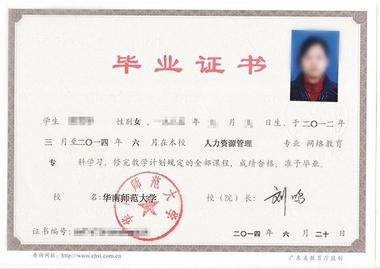 毕业证书
学生 性别 女, 一九 年 月 日生, 于二〇一二年
三 月至二〇一四年 六 月在本校 人力资源管理 专业 网络教育
专 科学习, 修完教学计划规定的全部课程, 成绩合格, 准予毕业。
校 名: 华南师范大学 校(院)长: 刘鸣
华南师范大学
证书编号:
二〇一四年 六 月 二十 日
查询网址: http://www.chsi.com.cn 广东省教育厅监制